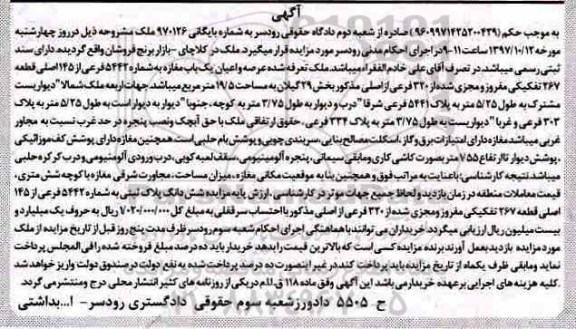 آگهی
به موجب حکم (۹۶۰۹۹۷۱۴۳۵۲۰۰۴۳۹) صادره از شعبه دوم دادگاه حقوقی رودسر به شماره بایگانی ۹۷۰۱۲۶ ملک مشروحه ذیل در روز چهارشنبه
مورخه ۱۳۹۷/۱۰/۱۲ ساعت ۱۱-۹ در اجرای احکام مدنی رودسر مورد مزایده قرار میگیرد. ملک در کلاچای - بازار برنج فروشان واقع گردیده، دارای سند
ثبتی رسمی میباشد. در تصرف آقای علی خادم الفقراء میباشد. ملک تعرفه شده عرصه واعیان یک باب مغازه به شماره ۵۴۴۲ فرعی از ۱۴۵ اصلی قطعه
۲۶۷ تفکیکی مفروز و مجزی شده از ۳۲۰ فرعی از اصلی مذکور بخش ۲۹ گیلان به مساحت ۱۹/۵ متر مربع میباشد. جهات اربعه ملک شمالا" دیواریست
مشترک به طول ۵/۲۵ متر به پلاک ۵۴۴۱ فرعی شرقا" درب و دیوار به طول ۳/۷۵ متر به کوچه، جنوبا" دیوار به دیوار است به طول ۵/۲۵ متر به پلاک
۳۰۳ فرعی و غربا" دیواریست به طول ۳/۷۵ متر به پلاک ۳۳۴ فرعی، حقوق ارتفاقی ملک با حق آبچک ونصب پنجره در حد غرب نسبت به مجاور
غربی میباشد مغازه دارای امتیازات برق و گاز، اسکلت مصالح بنایی، سربندی چوبی و پوشش بام حلبی است. همچنین مغازه دارای پوشش کف موزائیکی
، پوشش دیوار تا ارتفاع ۷۵۵ متر بصورت کاشی کاری ومابقی سیمانی، پنجره آلومینیومی، سقف لمبه کوبی، درب ورودی آلومینیومی ودرب کرکره حلبی
میباشد. نتیجه کارشناسی: باعنایت به مراتب فوق و همچنین بنا به موقعیت مکانی مغازه، میزان مساحت، مجاورت شرقی مغازه با کوچه شش متری،
قیمت معاملات منطقه در زمان بازدید و لحاظ جمیع جهات موثر در کارشناسی، ارزش پایه مزایده شش دانگ پلاک ثبتی به شماره ۵۴۴۲ فرعی از ۱۴۵
اصلی قطعه ۲۶۷ تفکیکی مفروز و مجزی شده از ۳۲۰ فرعی از اصلی مذکور با احتساب سرقفلی به مبلغ کل ۱/۰۲۰/۰۰۰/۰۰۰ ریال به حروف یک میلیارد و
بیست میلیون ریال ارزیابی میگردد. خریداران می توانند با هماهنگی اجرای احکام شعبه سوم رودسر ظرف مدت پنج روز قبل از تاریخ مزایده از ملک
مورد مزایده بازدید بعمل آورند برنده مزایده کسی است که بالاترین قیمت را بدهد. خریدار باید ده درصد مبلغ فروخته شده رافی المجلس پرداخت
نماید ومابقی ظرف یکماه از تاریخ مزایده باید پرداخت کند در غیر اینصورت ده درصد پرداخت شده به نفع دولت در صندوق دولت واریز خواهد شد
. کلیه هزینه های اجرایی بر عهده خریدار می باشد. این آگهی وفق ماده ۱۱۸ ق.ا.ا.م در یکی از روزنامه های کثیر انتشار محلی درج و منتشر می گردد.
ح ۵۵۰۵ دادورز شعبه سوم حقوقی دادگستری رودسر - ا... بداشتی